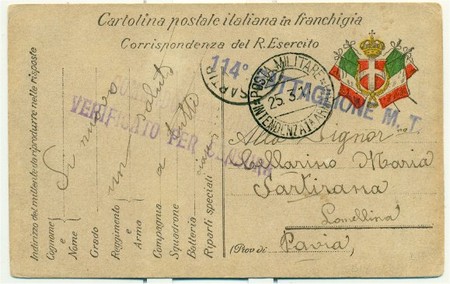 Cartolina postale italiana in franchigia
Corrispondenza del R. Esercito
114° BATTAGLIONE M. T.
POSTA MILITARE
INTENDENZA
25.3.
VERIFICATO PER CENSURA
Indirizzo del mittente da riprodurre nelle risposte
Cognome e Nome
Grado
Reggimento e Arma
Compagnia
Squadrone
Batteria
Riparti speciali
un saluto
a tutti
Alla Signora
Maria
Sartirana
Lomellina
(Prov. di Pavia)